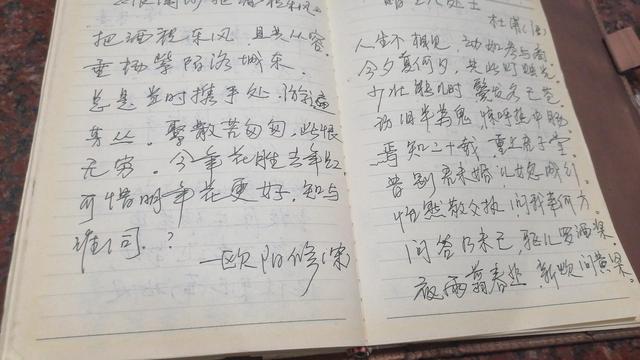 浪淘沙·把酒祝东风
把酒祝东风,且共从容
垂杨紫陌洛城东
总是当时携手处,游遍
芳丛。聚散苦匆匆,此恨
无穷。今年花胜去年红
可惜明年花更好,知与
谁同.?
—欧阳修(宋
赠卫八处士
杜甫(唐)
人生不相见,动如参与商。
今夕复何夕,共此灯烛光。
少壮能几时,鬓发各已苍。
访旧半为鬼,惊呼热中肠
焉知二十载,重上君子堂。
昔别君未婚,儿女忽成行
怡然敬父执,问我来何方。
问答乃未已,驱儿罗酒浆。
夜雨剪春韭,新炊间黄粱。